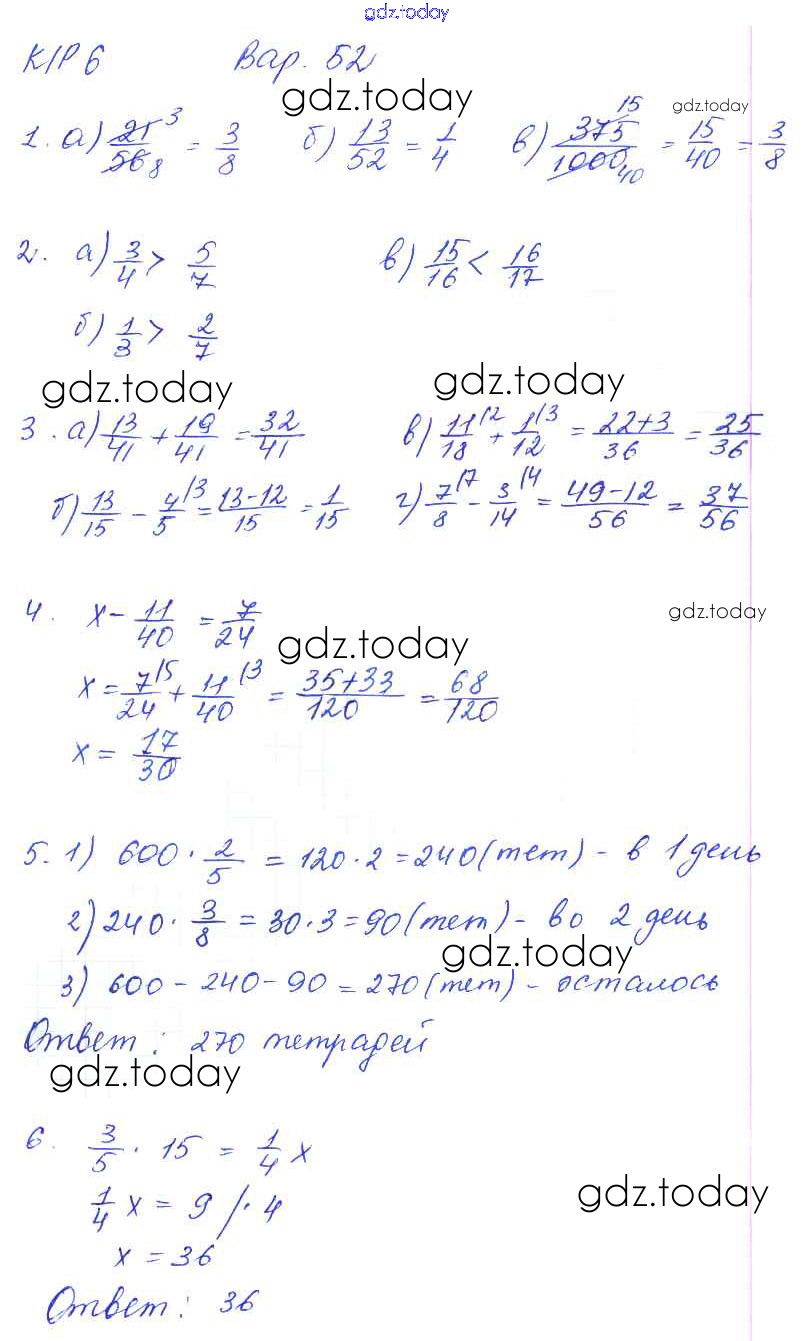 gdz.today
К/Р 6 Вар. 52
gdz.today gdz.today
1. а) 21/56 3 8 = 3/8 б) 13/52 = 1/4 в) 375/1000 15 40 = 15/40 = 3/8
2. а) 3/4 > 5/7 в) 15/16 < 16/17
б) 1/3 > 2/7
gdz.today gdz.today
3. а) 13/41 + 19/41 = 32/41 в) 11/18 /2 + 1/12 /3 = 22+3/36 = 25/36
б) 13/15 - 4/5 /3 = 13-12/15 = 1/15 г) 7/8 /7 - 3/14 /4 = 49-12/56 = 37/56
4. x - 11/40 = 7/24 gdz.today
gdz.today
x = 7/24 /5 + 11/40 /3 = 35+33/120 = 68/120
x = 17/30
5. 1) 600 · 2/5 = 120 · 2 = 240 (тет) - в 1 день
2) 240 · 3/8 = 30 · 3 = 90 (тет) - во 2 день
gdz.today
3) 600 - 240 - 90 = 270 (тет) - осталось
Ответ: 270 тетрадей
gdz.today
6. 3/5 · 15 = 1/4 x
1/4 x = 9 /· 4
gdz.today
x = 36
Ответ: 36